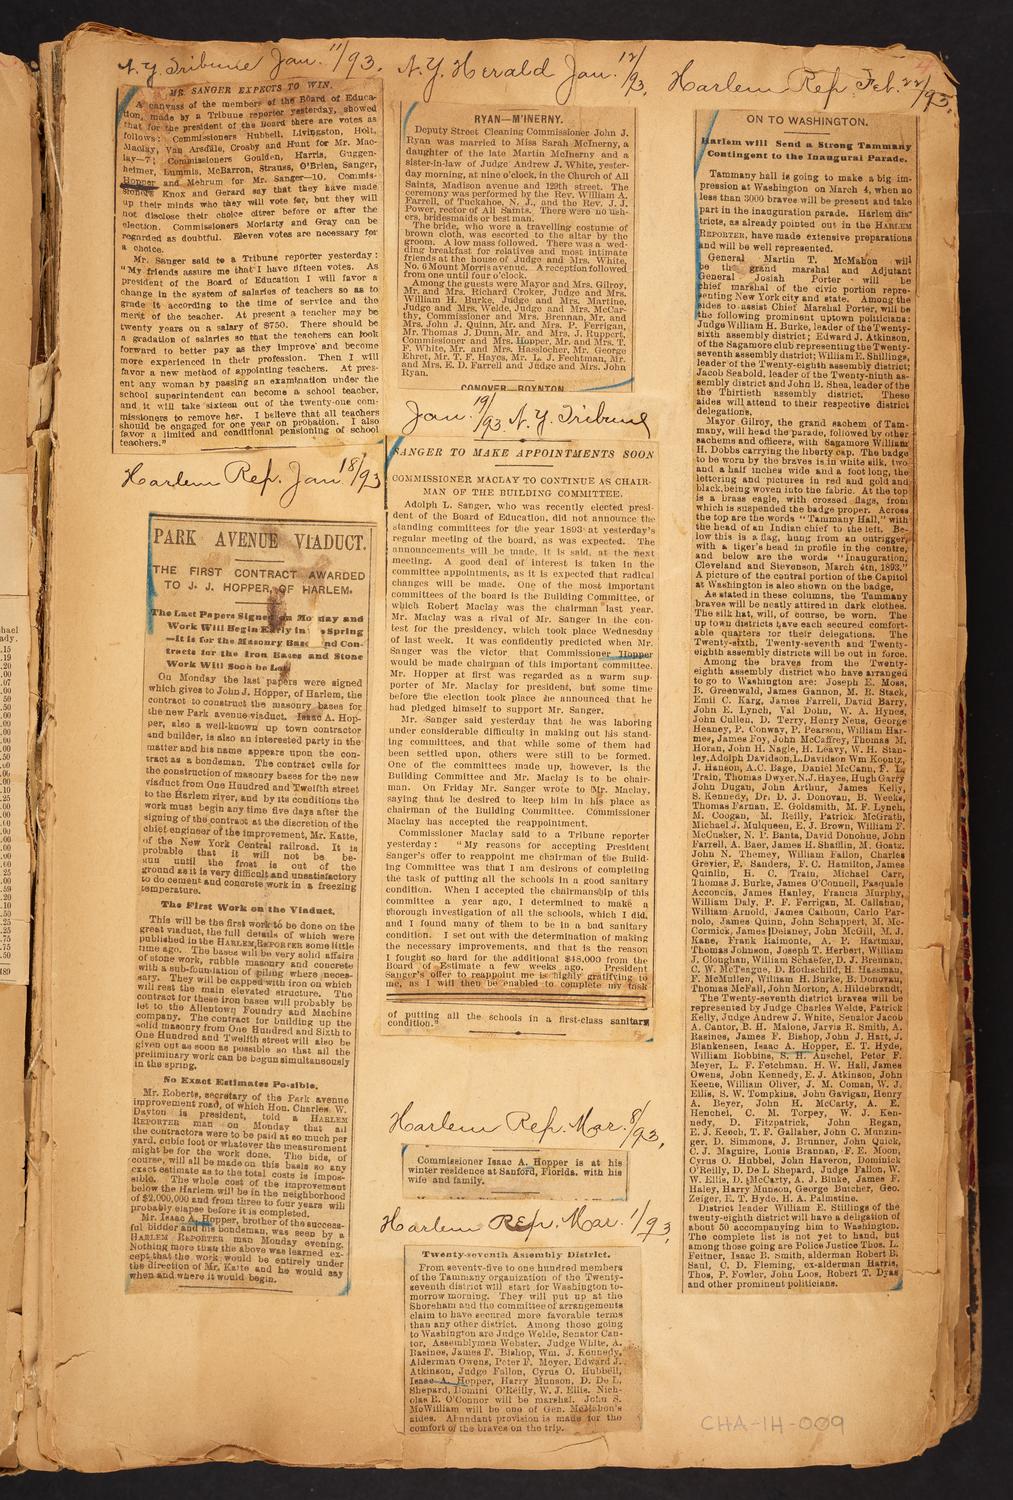 N.Y. Tribune Jan. 11/93.
MR. SANGER EXPECTS TO WIN.
A canvass of the members of the Board of Educa-
tion, made by a Tribune reporter yesterday, showed
that for the president of the Board there are votes as
follows: Commissioners Hubbell, Livingston, Holt,
Maclay, Van Arsdale, Crosby and Hunt for Mr. Mac-
lay—7; Commissioners Goulden, Harris, Guggen-
heimer, Lummis, McBarron, Strauss, O'Brien, Sanger,
Hopper and Mehrum for Mr. Sanger—10. Commis-
sioners Knox and Gerard say that they have made
up their minds who they will vote for, but they will
not disclose their choice either before or after the
election. Commissioners Moriarty and Gray can be
regarded as doubtful. Eleven votes are necessary for
a choice.
Mr. Sanger said to a Tribune reporter yesterday:
"My friends assure me that I have fifteen votes. As
president of the Board of Education I will favor a
change in the system of salaries of teachers so as to
grade it according to the time of service and the
merit of the teacher. At present a teacher may be
twenty years on a salary of $750. There should be
a gradation of salaries so that the teachers can look
forward to better pay as they improve and become
more experienced in their profession. Then I will
favor a new method of appointing teachers. At pres-
ent any woman by passing an examination under the
school superintendent can become a school teacher,
and it will take sixteen out of the twenty-one com-
missioners to remove her. I believe that all teachers
should be engaged for one year on probation. I also
favor a limited and conditional pensioning of school
teachers."
Harlem Rep. Jan. 18/93
PARK AVENUE VIADUCT.
THE FIRST CONTRACT AWARDED
TO J. J. HOPPER, OF HARLEM.
The Last Papers Signed on Monday and
Work Will Begin Early in Spring
—It is for the Masonry Bases and Con-
tracts for the Iron Bases and Stone
Work Will Soon be Let.
On Monday the last papers were signed
which gives to John J. Hopper, of Harlem, the
contract to construct the masonry bases for
the new Park avenue viaduct. Isaac A. Hop-
per, also a well-known up town contractor
and builder, is also an interested party in the
matter and his name appears upon the con-
tract as a bondsman. The contract calls for
the construction of masonry bases for the new
viaduct from One Hundred and Twelfth street
to the Harlem river, and by its conditions the
work must begin any time five days after the
signing of the contract at the discretion of the
chief engineer of the improvement, Mr. Katte,
of the New York Central railroad. It is
probable that it will not be be-
gun until the frost is out of the
ground as it is very difficult and unsatisfactory
to do cement and concrete work in a freezing
temperature.
The First Work on the Viaduct.
This will be the first work to be done on the
great viaduct, the full details of which were
published in the HARLEM REPORTER some little
time ago. The bases will be very solid affairs
of stone work, rubble masonry and concrete
with a sub-foundation of piling where neces-
sary. They will be capped with iron on which
will rest the main elevated structure. The
contract for these iron bases will probably be
let to the Allentown Foundry and Machine
company. The contract for building up the
solid masonry from One Hundred and Sixth to
One Hundred and Twelfth street will also be
given out as soon as possible so that all the
preliminary work can be begun simultaneously
in the spring.
No Exact Estimates Possible.
Mr. Roberts, secretary of the Park avenue
improvement road, of which Hon. Charles W.
Dayton is president, told a HARLEM
REPORTER man on Monday that all
the contractors were to be paid at so much per
yard, cubic foot or whatever the measurement
might be for the work done. The bids, of
course, will all be made on this basis so any
exact estimate as to the total costs is impos-
sible. The whole cost of the improvement
below the Harlem will be in the neighborhood
of $2,000,000 and from three to four years will
probably elapse before it is completed.
Mr. Isaac A. Hopper, brother of the success-
ful bidder and his bondsman, was seen by a
HARLEM REPORTER man Monday evening.
Nothing more than the above was learned ex-
cept that the work would be entirely under
the direction of Mr. Katte and he would say
when and where it would begin.
N.Y. Herald Jan. 12/93.
RYAN—M'INERNY.
Deputy Street Cleaning Commissioner John J.
Ryan was married to Miss Sarah McInerny, a
daughter of the late Martin McInerny and a
sister-in-law of Judge Andrew J. White, yester-
day morning, at nine o'clock, in the Church of All
Saints, Madison avenue and 129th street. The
ceremony was performed by the Rev. William A.
Farrell, of Tuckahoe, N. J., and the Rev. J. J.
Power, rector of All Saints. There were no ush-
ers, bridesmaids or best man.
The bride, who wore a travelling costume of
brown cloth, was escorted to the altar by the
groom. A low mass followed. There was a wed-
ding breakfast for relatives and most intimate
friends at the house of Judge and Mrs. White,
No. 6 Mount Morris avenue. A reception followed
from one until four o'clock.
Among the guests were Mayor and Mrs. Gilroy,
Mr. and Mrs. Richard Croker, Judge and Mrs.
William H. Burke, Judge and Mrs. Martine,
Judge and Mrs. Welde, Judge and Mrs. McCar-
thy, Commissioner and Mrs. Brennan, Mr. and
Mrs. John J. Quinn, Mr. and Mrs. P. Ferrigan,
Mr. Thomas J. Dunn, Mr. and Mrs. J. Ruppert,
Commissioner and Mrs. Hopper, Mr. and Mrs. T.
F. White, Mr. and Mrs. Hasslocher, Mr. George
Ehret, Mr. T. F. Hayes, Mr. L. J. Fechtman, Mr.
and Mrs. E. D. Farrell and Judge and Mrs. John
Ryan.
CONOVER—BOYNTON
Jan. 19/93 N.Y. Tribune
SANGER TO MAKE APPOINTMENTS SOON
COMMISSIONER MACLAY TO CONTINUE AS CHAIR-
MAN OF THE BUILDING COMMITTEE.
Adolph L. Sanger, who was recently elected presi-
dent of the Board of Education, did not announce the
standing committees for the year 1893 at yesterday's
regular meeting of the board, as was expected. The
announcements will be made, it is said, at the next
meeting. A good deal of interest is taken in the
committee appointments, as it is expected that radical
changes will be made. One of the most important
committees of the board is the Building Committee, of
which Robert Maclay was the chairman last year.
Mr. Maclay was a rival of Mr. Sanger in the con-
test for the presidency, which took place Wednesday
of last week. It was confidently predicted when Mr.
Sanger was the victor that Commissioner Hopper
would be made chairman of this important committee.
Mr. Hopper at first was regarded as a warm sup-
porter of Mr. Maclay for president, but some time
before the election took place he announced that he
had pledged himself to support Mr. Sanger.
Mr. Sanger said yesterday that he was laboring
under considerable difficulty in making out his stand-
ing committees, and that while some of them had
been settled upon, others were still to be formed.
One of the committees made up, however, is the
Building Committee and Mr. Maclay is to be chair-
man. On Friday Mr. Sanger wrote to Mr. Maclay,
saying that he desired to keep him in his place as
chairman of the Building Committee. Commissioner
Maclay has accepted the reappointment.
Commissioner Maclay said to a Tribune reporter
yesterday: "My reasons for accepting President
Sanger's offer to reappoint me chairman of the Build-
ing Committee was that I am desirous of completing
the task of putting all the schools in a good sanitary
condition. When I accepted the chairmanship of this
committee a year ago, I determined to make a
thorough investigation of all the schools, which I did,
and I found many of them to be in a bad sanitary
condition. I set out with the determination of making
the necessary improvements, and that is the reason
I fought so hard for the additional $48,000 from the
Board of Estimate a few weeks ago. President
Sanger's offer to reappoint me is highly gratifying to
me, as I will then be enabled to complete my task
of putting all the schools in a first-class sanitary
condition."
Harlem Rep. Mar. 8/93,
Commissioner Isaac A. Hopper is at his
winter residence at Sanford, Florida, with his
wife and family.
Harlem Rep. Mar. 1/93,
Twenty-seventh Assembly District.
From seventy-five to one hundred members
of the Tammany organization of the Twenty-
seventh district will start for Washington to-
morrow morning. They will put up at the
Shoreham and the committee of arrangements
claim to have secured more favorable terms
than any other district. Among those going
to Washington are Judge Welde, Senator Can-
tor, Assemblymen Webster, Judge White, A.
Rasines, James F. Bishop, Wm. J. Kennedy,
Alderman Owens, Peter F. Meyer, Edward J.
Atkinson, Judge Fallon, Cyrus O. Hubbell,
Isaac A. Hopper, Harry Munson, D. De L.
Shepard, Domini O'Reilly, W. J. Ellis. Nich-
olas R. O'Connor will be marshal. John S.
McWilliam will be one of Gen. McMahon's
aides. Abundant provision is made for the
comfort of the braves on the trip.
Harlem Rep. Feb. 22/93,
ON TO WASHINGTON.
Harlem Will Send a Strong Tammany
Contingent to the Inaugural Parade.
Tammany hall is going to make a big im-
pression at Washington on March 4, when no
less than 3000 braves will be present and take
part in the inauguration parade. Harlem dis-
tricts, as already pointed out in the HARLEM
REPORTER, have made extensive preparations
and will be well represented.
General Martin T. McMahon will
be the grand marshal and Adjutant
General Josiah Porter will be
chief marshal of the civic portion repre-
senting New York city and state. Among the
aides to assist Chief Marshal Porter, will be
the following prominent uptown politicians:
Judge William H. Burke, leader of the Twenty-
sixth assembly district; Edward J. Atkinson,
of the Sagamore club representing the Twenty-
seventh assembly district; William E. Shillings,
leader of the Twenty-eighth assembly district;
Jacob Seabold, leader of the Twenty-ninth as-
sembly district and John B. Shea, leader of the
the Thirtieth assembly district. These
aides will attend to their respective district
delegations.
Mayor Gilroy, the grand sachem of Tam-
many, will head the parade, followed by other
sachems and officers, with Sagamore William
H. Dobbs carrying the liberty cap. The badge
to be worn by the braves is in white silk, two
and a half inches wide and a foot long, the
lettering and pictures in red and gold and
black, being woven into the fabric. At the top
is a brass eagle, with crossed flags, from
which is suspended the badge proper. Across
the top are the words "Tammany Hall," with
the head of an Indian chief to the left. Be-
low this is a flag, hung from an outrigger,
with a tiger's head in profile in the centre,
and below are the words "Inauguration,
Cleveland and Stevenson, March 4th, 1893."
A picture of the central portion of the Capitol
at Washington is also shown on the badge.
As stated in these columns, the Tammany
braves will be neatly attired in dark clothes.
The silk hat, will, of course, be worn. The
up town districts have each secured comfort-
able quarters for their delegations. The
Twenty-sixth, Twenty-seventh and Twenty-
eighth assembly districts will be out in force.
Among the braves from the Twenty-
eighth assembly district who have arranged
to go to Washington are: Joseph E. Moss,
B. Greenwald, James Gannon, M. B. Stack,
Emil C. Karg, James Farrell, David Barry,
John E. Lynch, Val Dohn, W. A. Hynes,
John Cullen, D. Terry, Henry Neus, George
Heaney, P. Conway, P. Pearson, William Har-
mes, James Foy, John McCaffrey, Thomas M.
Horan, John H. Nagle, H. Leavy, W. H. Stan-
ley, Adolph Davidson, L. Davidson Wm Koontz,
J. Hanson, A.C. Bage, Daniel McCann, F. L.
Train, Thomas Dwyer, N.J. Hayes, Hugh Garry
John Dugan, John Arthur, James Kelly,
S. Kennedy, Dr. D. J. Donovan, B. Weeks,
Thomas Farnan, E. Goldsmith, M. F. Lynch,
M. Coogan, M. Reilly, Patrick McGrath,
Michael J. Mulqueen, E. J. Brown, William F.
McCusker, N. P. Banta, David Donohue, John
Farrell, A. Baer, James H. Shaffin, M. Goatz,
John N. Themey, William Fallon, Charles
Grevier, F. Sanders, F. C. Hamilton, James
Quinlin, H. C. Train, Michael Carr,
Thomas J. Burke, James O'Connell, Pasquale
Acconcia, James Hanley, Francis Murphy,
William Daly, P. F. Ferrigan, M. Callahan,
William Arnold, James Calhoun, Carlo Par-
nolo, James Quinn, John Schappert, M. Mc-
Cormick, James Delaney, John McGill, M. J.
Kane, Frank Raimonte, A. P. Hartman,
Thomas Johnson, Joseph T. Herbert, William
J. Cloughan, William Schaefer, D. J. Brennan,
C. W. McTeague, D. Rothschild, B. Hassman,
F. McMullen, William H. Burke, B. Donovan,
Thomas McFall, John Morton, A. Hildebrandt,
The Twenty-seventh district braves will be
represented by Judge Charles Welde, Patrick
Kelly, Judge Andrew J. White, Senator Jacob
A. Cantor, B. H. Malone, Jarvis R. Smith, A.
Rasines, James F. Bishop, John J. Hart, J.
Blankensen, Isaac A. Hopper, E. T. Hyde,
William Robbins, S. H. Anschel, Peter F.
Meyer, L. F. Fetchman, H. W. Hall, James
Owens, John Kennedy, E. J. Atkinson, John
Keene, William Oliver, J. M. Coman, W. J.
Ellis, S. W. Tompkins, John Gavigan, Henry
A. Beyer, John H. McCarty, A. E.
Henchel, C. M. Torpey, W. J. Ken-
nedy, D. Fitzpatrick, John Regan,
E. J. Keech, T. F. Gallaher, John C. Munzin-
ger, D. Simmons, J. Brunner, John Quick,
C. J. Maguire, Louis Brannan, F. E. Moon,
Cyrus O. Hubbel, John Haveron, Dominick
O'Reilly, D. De L Shepard, Judge Fallon, W.
W. Ellis, D. McCarty, A. J. Bluke, James F.
Haley, Harry Munson, George Butcher, Geo.
Zeiger, E. T. Hyde, H. A. Palmatine.
District leader William E. Stillings of the
twenty-eighth district will have a deligation of
about 50 accompanying him to Washington.
The complete list is not yet to hand, but
among those going are Police Justice Thos. L.
Feitner, Isaac B. Smith, alderman Robert B.
Saul, C. D. Fleming, ex-alderman Harris,
Thos. P. Fowler, John Loos, Robert T. Dyas
and other prominent politicians.
CHA-1H-009